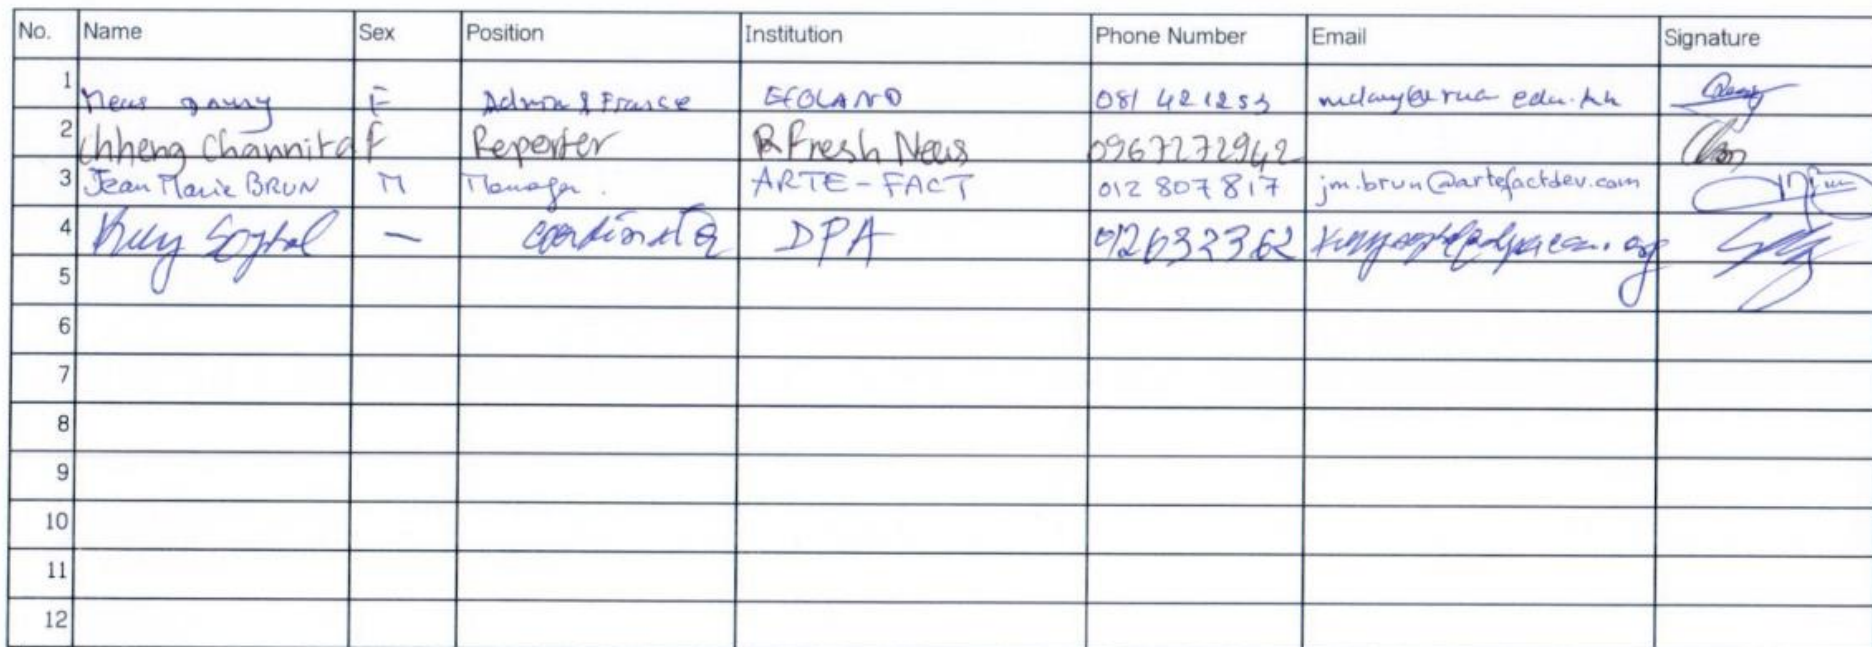 No. Name Sex Position Institution Phone Number Email Signature
1 F Admin & ECOLAND 081 421253
2 Chheng Channita F Reporter Fresh News 0967272942
3 Jean Marie BRUN M Manager. ARTE-FACT 012 807 817 jm.brun@artefactdev.com
4 — coordinator DPA 012632362
5
6
7
8
9
10
11
12